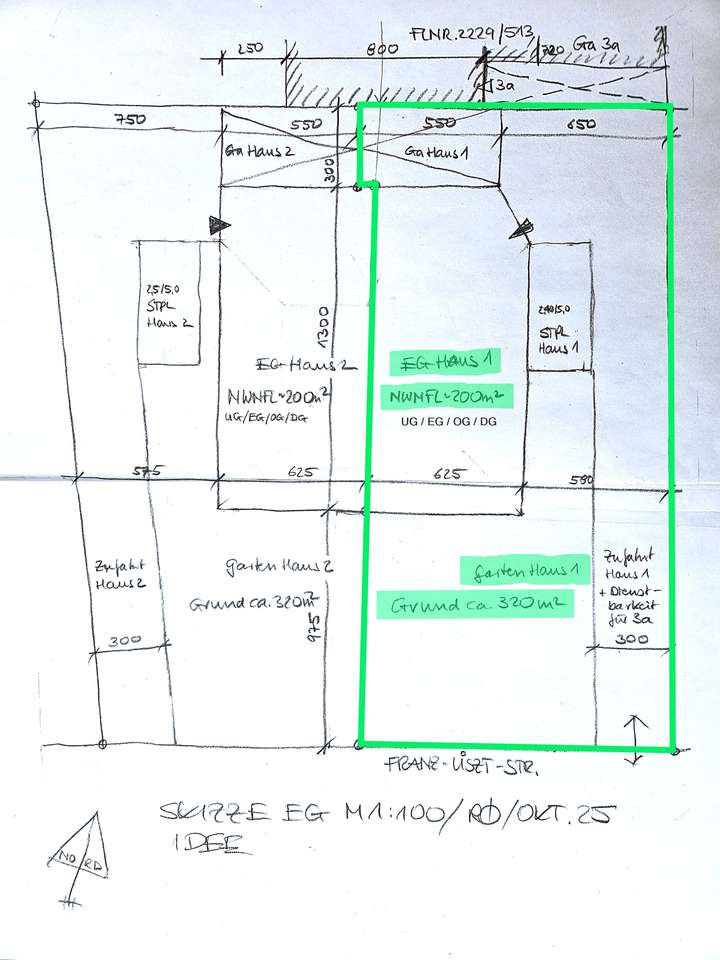 FLNR. 2229/513
250
800
720
Ga 3a
3a
750
550
550
650
Ga Haus 2
Ga Haus 1
300
2,5/5,0
STPL
Haus 2
2,40/5,0
STPL
Haus 1
1300
EG Haus 2
EG Haus 1
NWNFL~200m²
NWNFL~200m²
UG/EG/OG/DG
UG / EG / OG / DG
575
625
625
580
Zufahrt
Haus 2
Garten Haus 2
Garten Haus 1
Zufahrt
Haus 1
+ Dienst-
barkeit
für 3a
Grund ca. 320m²
Grund ca. 320m²
975
300
300
FRANZ-LISZT-STR.
SKIZZE EG M1:100/RØ/OKT.25
IDEE
NORD